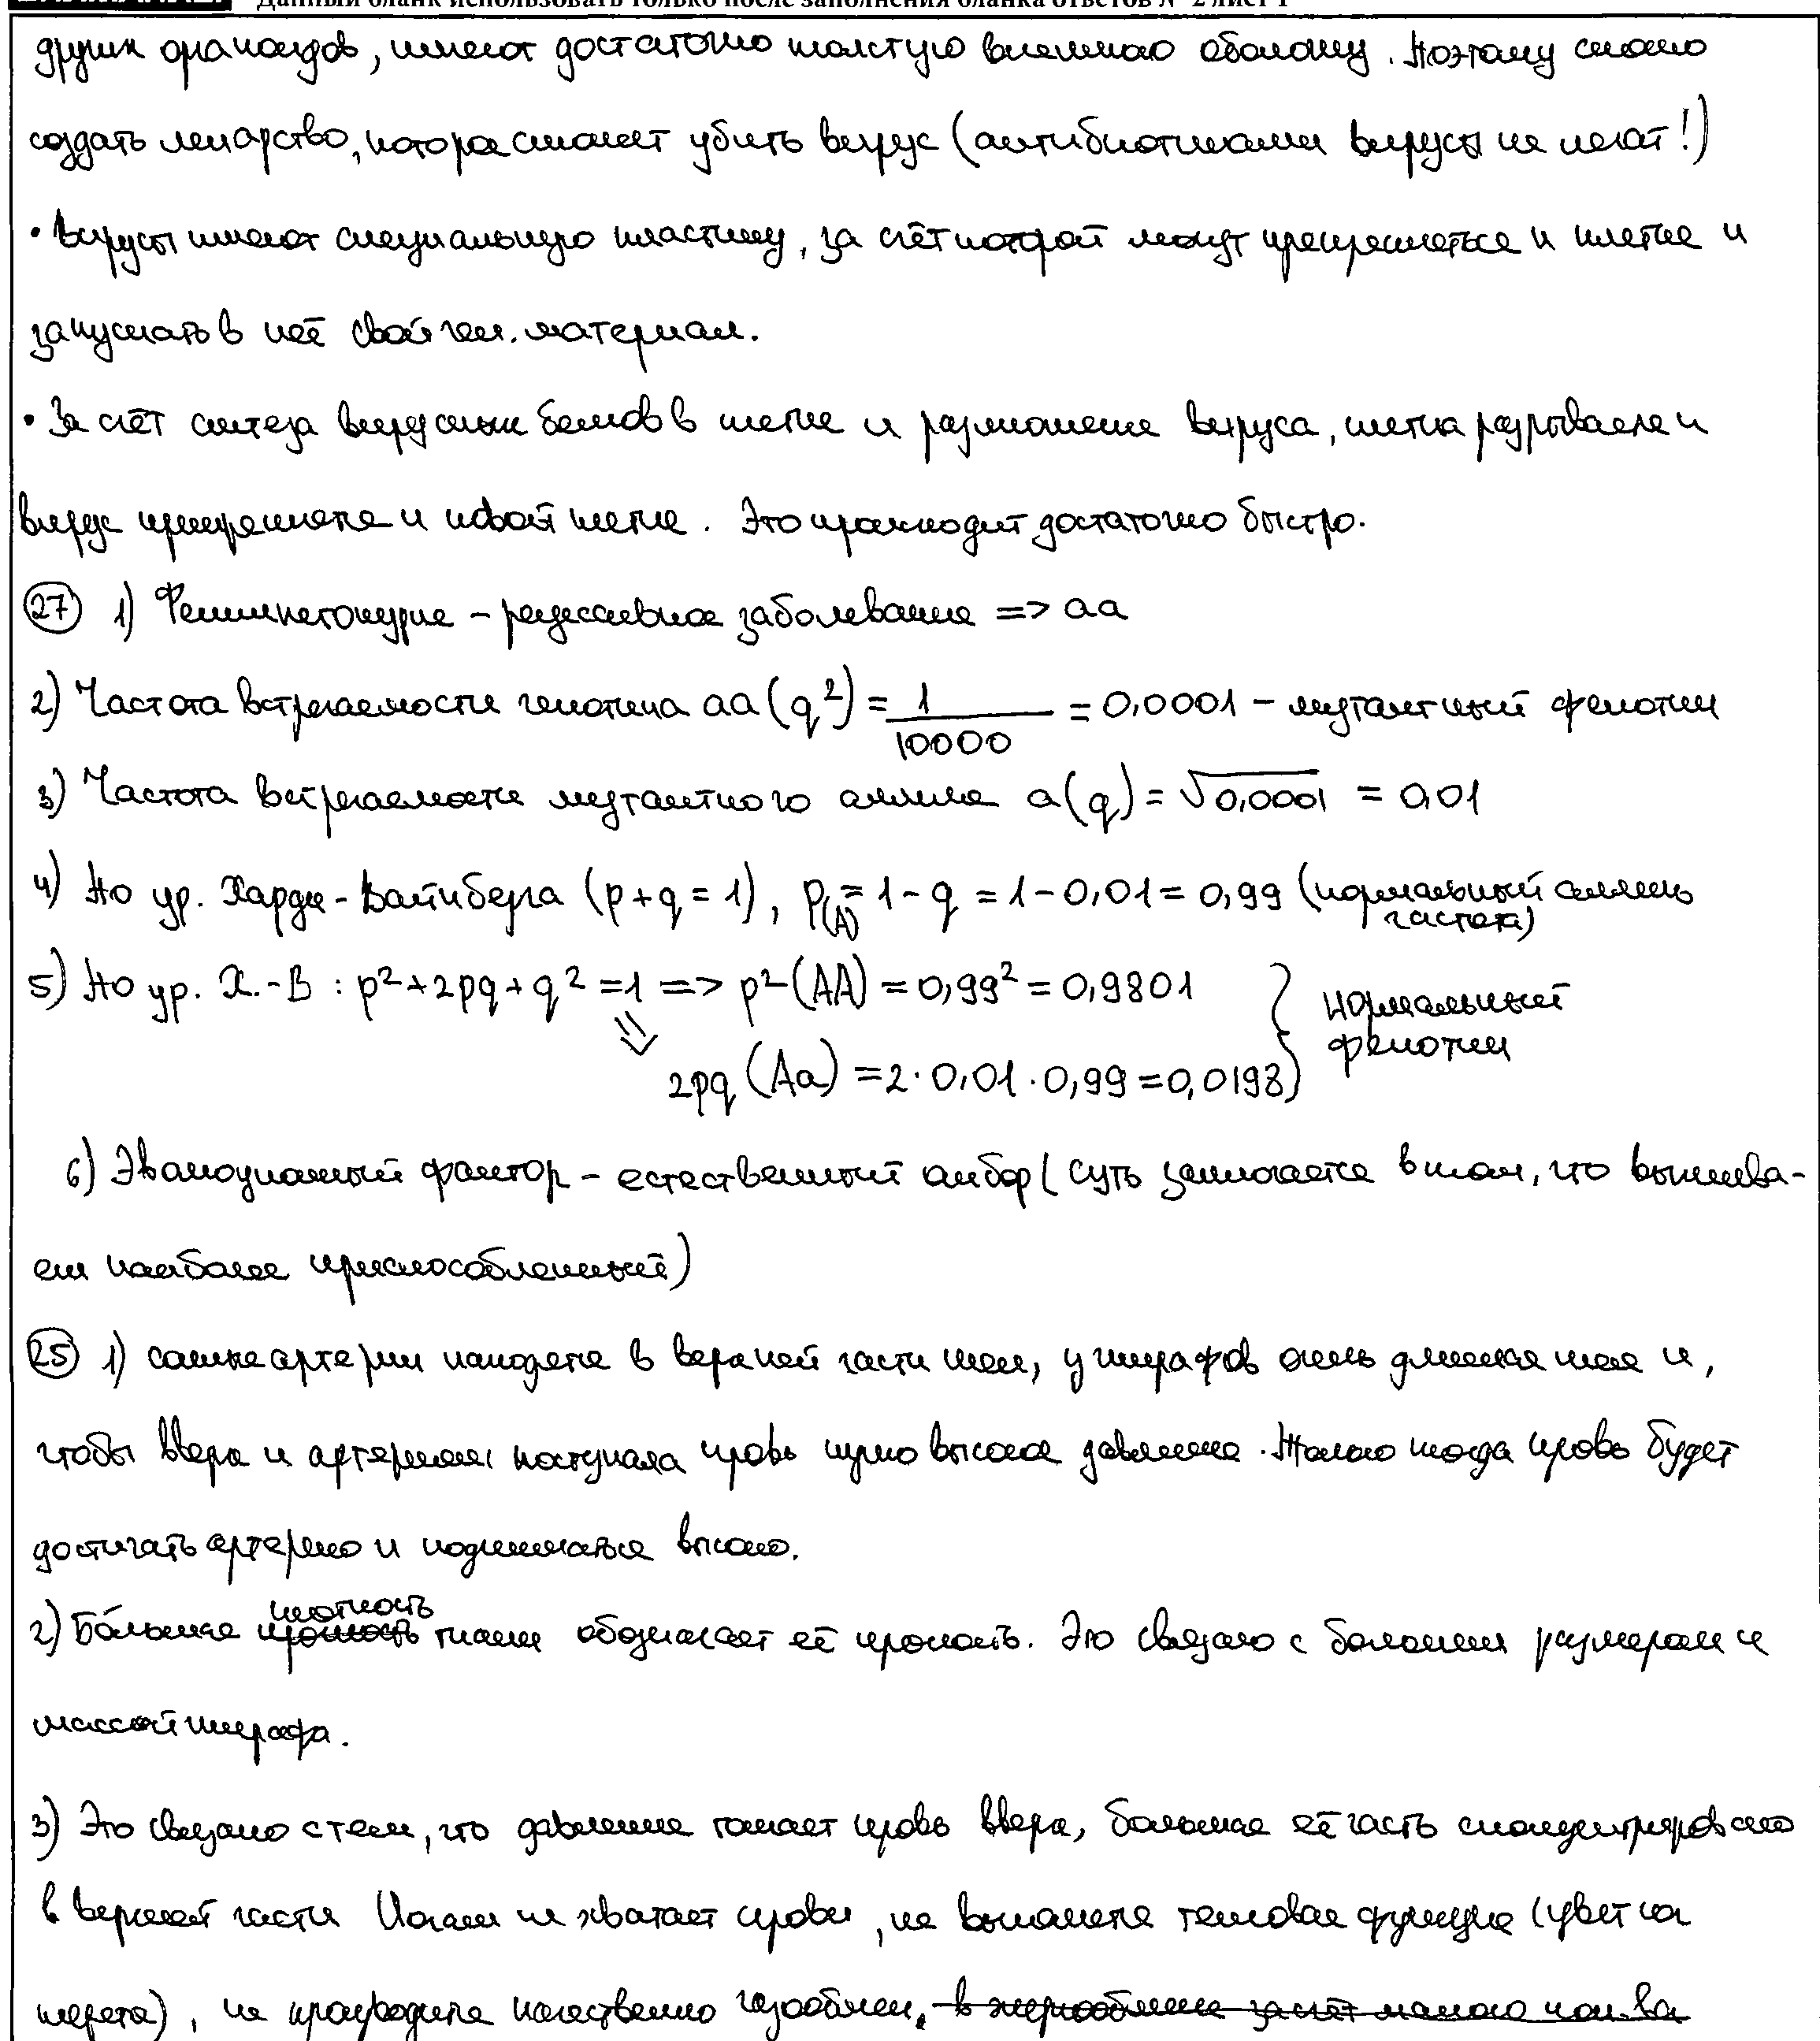 Данный бланк использовать только после заполнения бланка ответов № 2 лист 1
других органоидов, имеют достаточно толстую внешнюю оболочку. Поэтому сложно
создать лекарство, которое сможет убить вирус (антибиотиками вирусы не лечат!)
• Вирусы имеют специальную пластину, за счёт которой могут прикрепляться к клетке и
запускать в неё свой ген. материал.
• За счёт синтеза вирусных белков в клетке и размножение вируса, клетка разрывается и
вирус прикрепляется к новой клетке. Это происходит достаточно быстро.
27 1) Фенилкетонурия – рецессивное заболевание => aa
2) Частота встречаемости генотипа aa (q²) = 1/10000 = 0,0001 – мутантный фенотип
3) Частота встречаемости мутантного аллеля a(q) = √0,0001 = 0,01
4) По ур. Харди-Вайнберга (p+q = 1), p(A) = 1 – q = 1 – 0,01 = 0,99 (нормальный аллель
частота)
5) По ур. Х.-В : p²+2pq+q² =1 => p² (AA) = 0,99² = 0,9801 } нормальный
фенотип
=> 2pq (Aa) = 2·0,01·0,99 = 0,0198
6) Эволюционный фактор – естественный отбор (суть заключается в том, что выжива-
ет наиболее приспособленный)
25 1) сонные артерии находятся в верхней части шеи, у жирафов очень длинная шея и,
чтобы вверх к артериям поступала кровь нужно высокое давление. Только тогда кровь будет
достигать артерию и подниматься высоко.
2) Большая плотность ткани обозначает её прочность. Это связано с большим размером и
массой жирафа.
3) Это связано с тем, что давление толкает кровь вверх, большая её часть сконцентрирована
в верхней части Ногам не хватает крови, не выполняется тепловая функция (цвет на
), не проводится качественно газообмен, в за счёт малого кол-ва